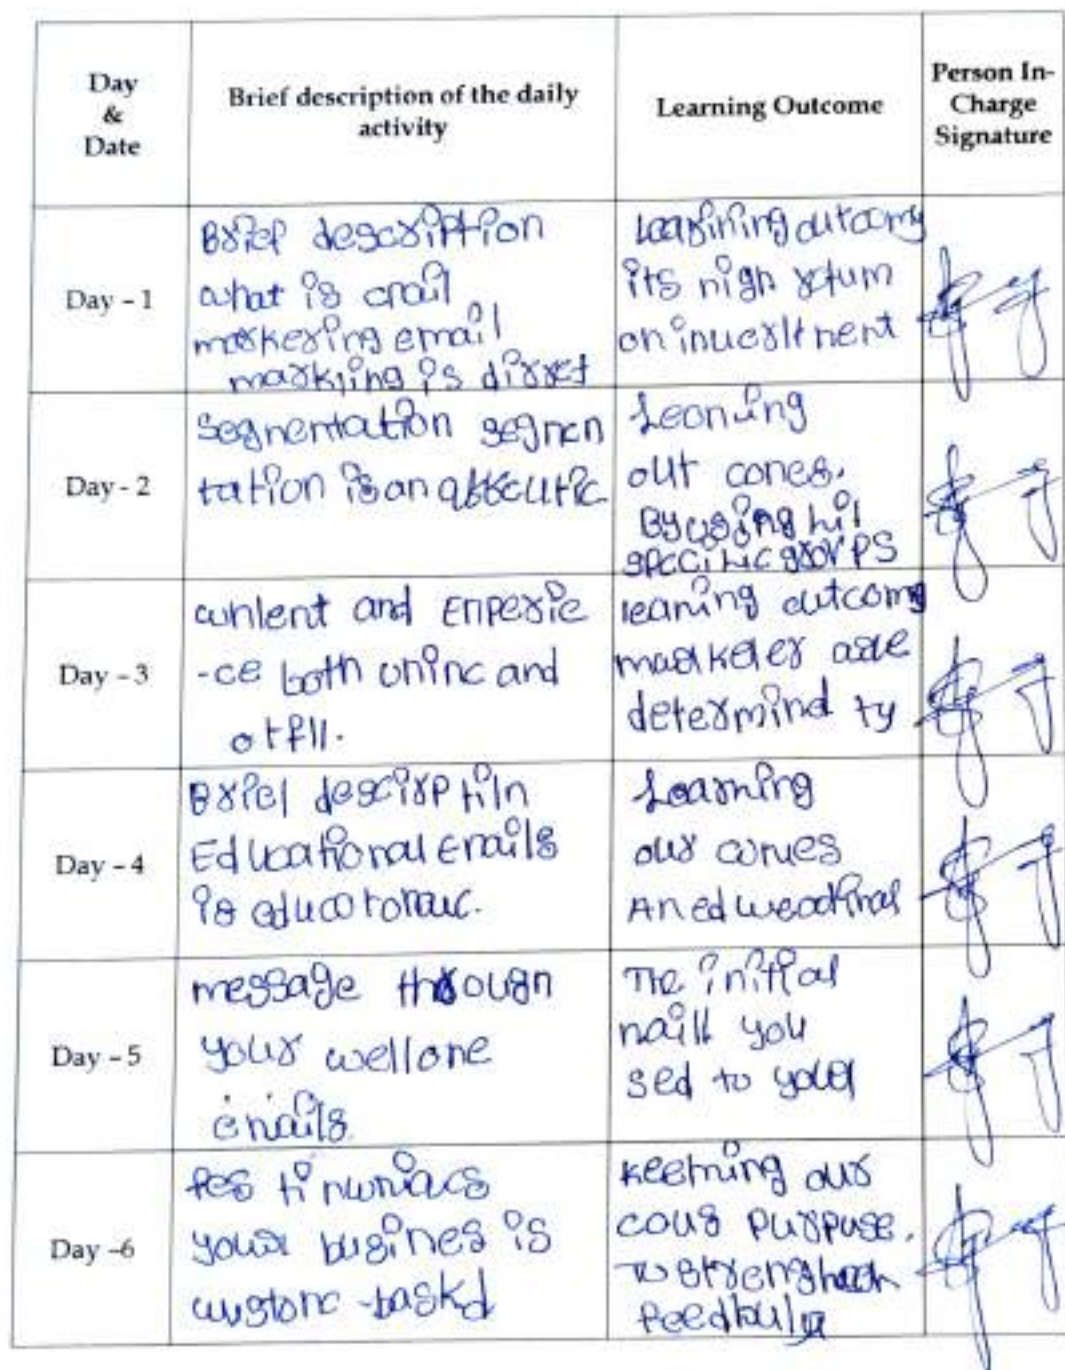 Day
&
Date
Brief description of the daily
activity
Learning Outcome
Person In-
Charge
Signature
Day - 1
Brief description
what is email
markering email
markjing is dirret
Learining outcomg
its nigh return
on inuerltnent
Day - 2
segnentation segnen
tation is an
Leorning
out cones.
By using hil
speciric grorps
Day - 3
and Enperie
-ce both oninc and
otfll.
leaning outcomg
marketer are
determind ty
Day - 4
Briel descirptiln
Educational Enails
is
Learning
our comes
An
Day - 5
message through
your wellone
enails
The initial
naill you
sed to your
Day -6
your busines is
custone -baskd
our
cous purpuse.
to